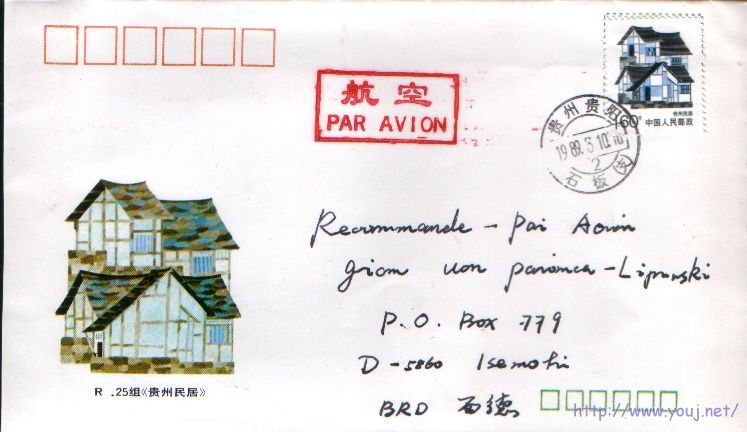 航空
PAR AVION
160
贵州民居
中国人民邮政
贵州贵阳
1989.3.10.16
2
石板
Recommande - Par Avion
gion von paronca - Lipinski
P.O. Box 779
D-5860 Isemohi
BRD 西德
R .25组《贵州民居》
http://www.youj.net/